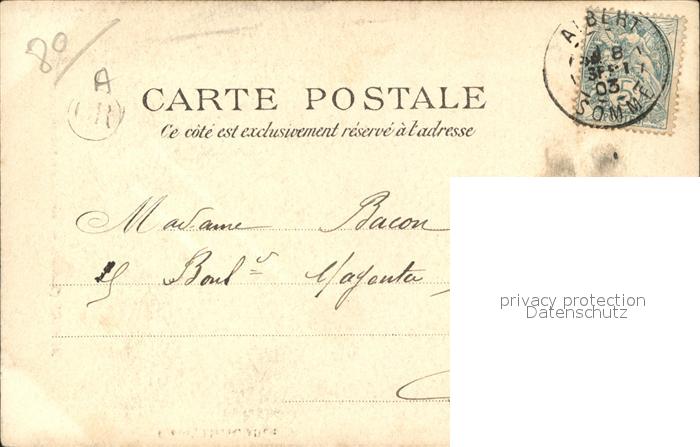 80/
A
OR
CARTE POSTALE
Ce côté est exclusivement réservé à l'adresse
ALBERT
8
SEPT
03
SOMME
Madame Bacon
15 Boul^d Magenta
privacy protection
Datenschutz